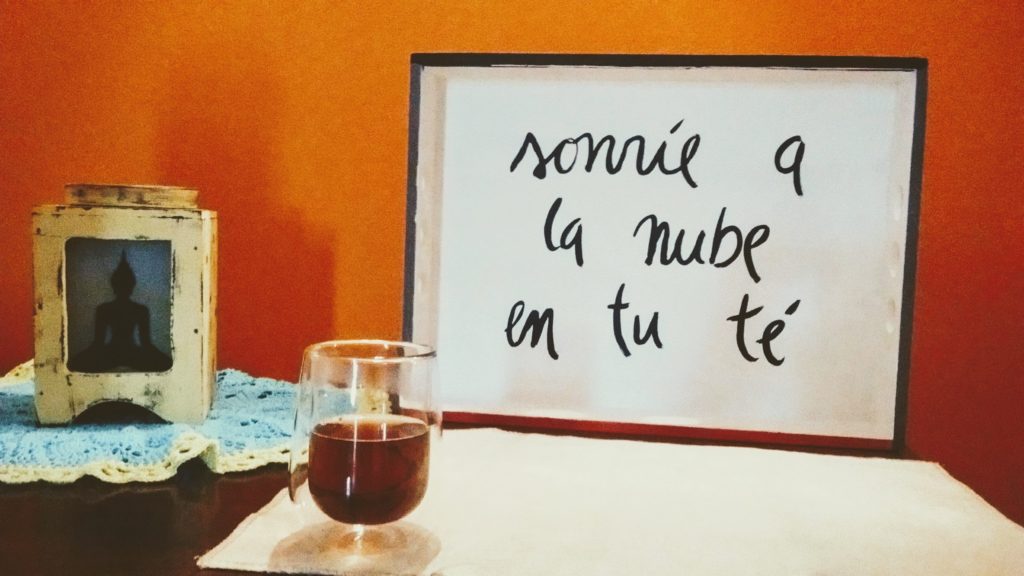 sonríe a
la nube
en tu té